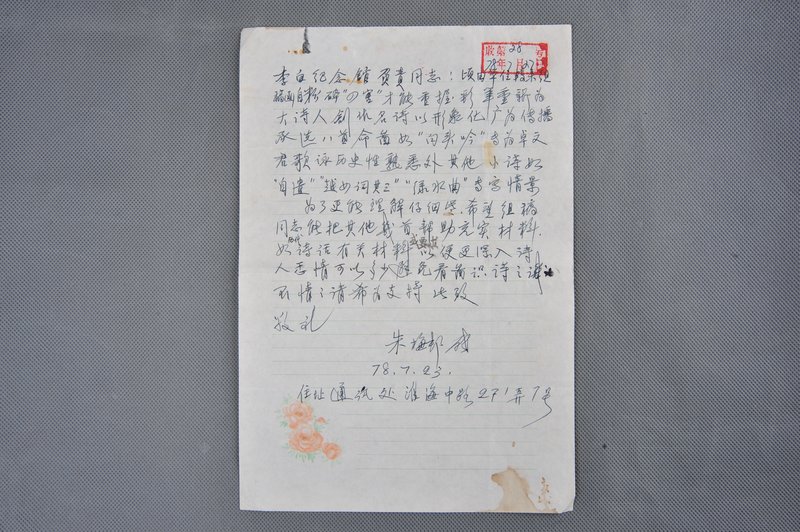 28
78年7月27
李白纪念馆 贾贵同志：顷由单位转来组
粉碎"四害"才能重握彩笔重新为
大诗人创作名诗以形象化广为传播
承选八首命画如"白头吟"专为卓文
君歌诵历史性熟悉外其他小诗如
"自遣""越女词其三""渌水曲"专写情景
为了更能理解仔细 希望组稿
同志能把其他几首帮助充实材料
如诗话有关材料以便更深入诗
人悉情可以多少避免看画识诗之
不情之请希为支持 此致
敬礼
朱梅邨
78.7.23.
住址通讯处 淮海中路271弄7号